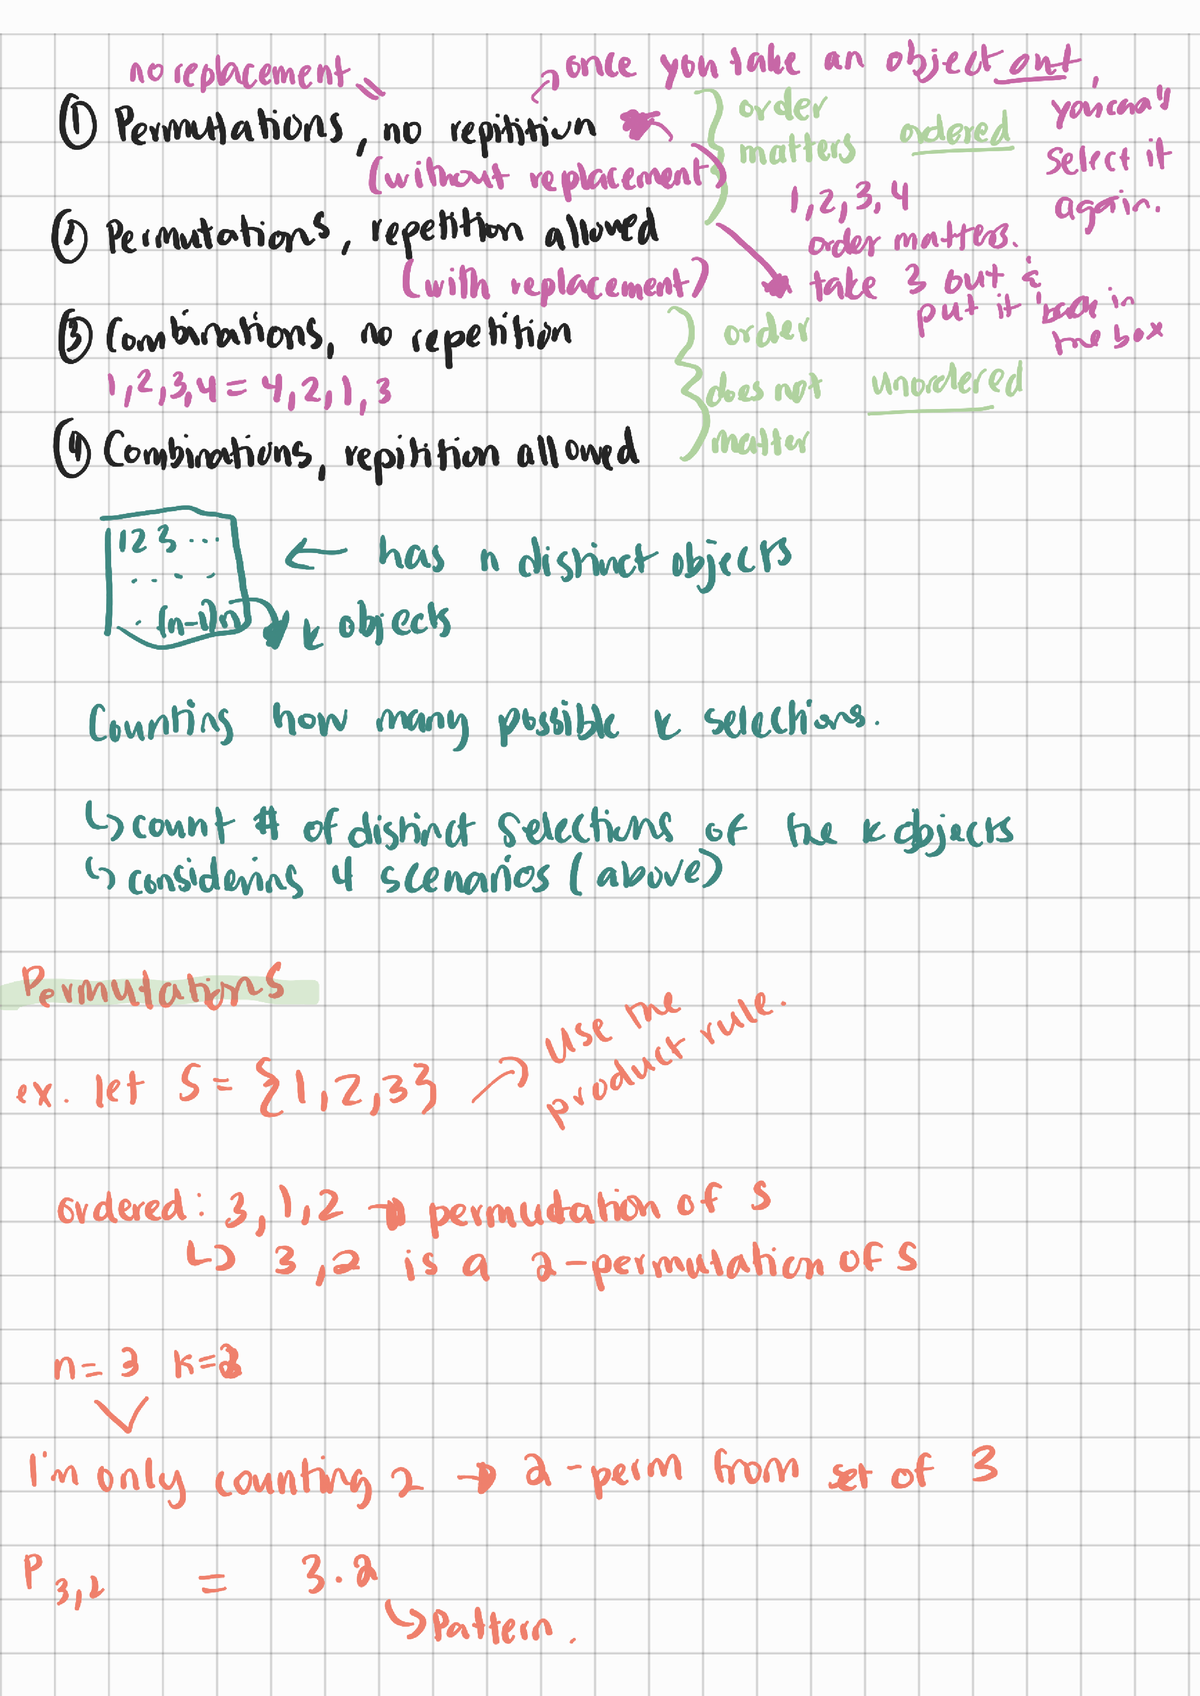 no replacement
once you take an object out,
you can's
select it
again.
① Permutations, no repitition
(without replacement)
order
matters
ordered
1, 2, 3, 4
order matters.
② Permutations, repetition allowed
(with replacement)
take 3 out &
put it back in
the box
③ Combinations, no repetition
1, 2, 3, 4 = 4, 2, 1, 3
order
does not
matter
unordered
④ Combinations, repitition allowed
1 2 3 ...
. . . .
. (n-1) n
← has n distinct objects
k objects
Counting how many possible k selections.
↳ count # of distinct selections of the k objects
↳ considering 4 scenarios (above)
Permutations
ex. let S = {1, 2, 3}
Use the
product rule.
ordered: 3, 1, 2 → permutation of S
↳ 3, 2 is a 2-permutation of S
n = 3 k = 2
I'm only counting 2 → 2-perm from set of 3
P 3,2 = 3 · 2
↳ Pattern.